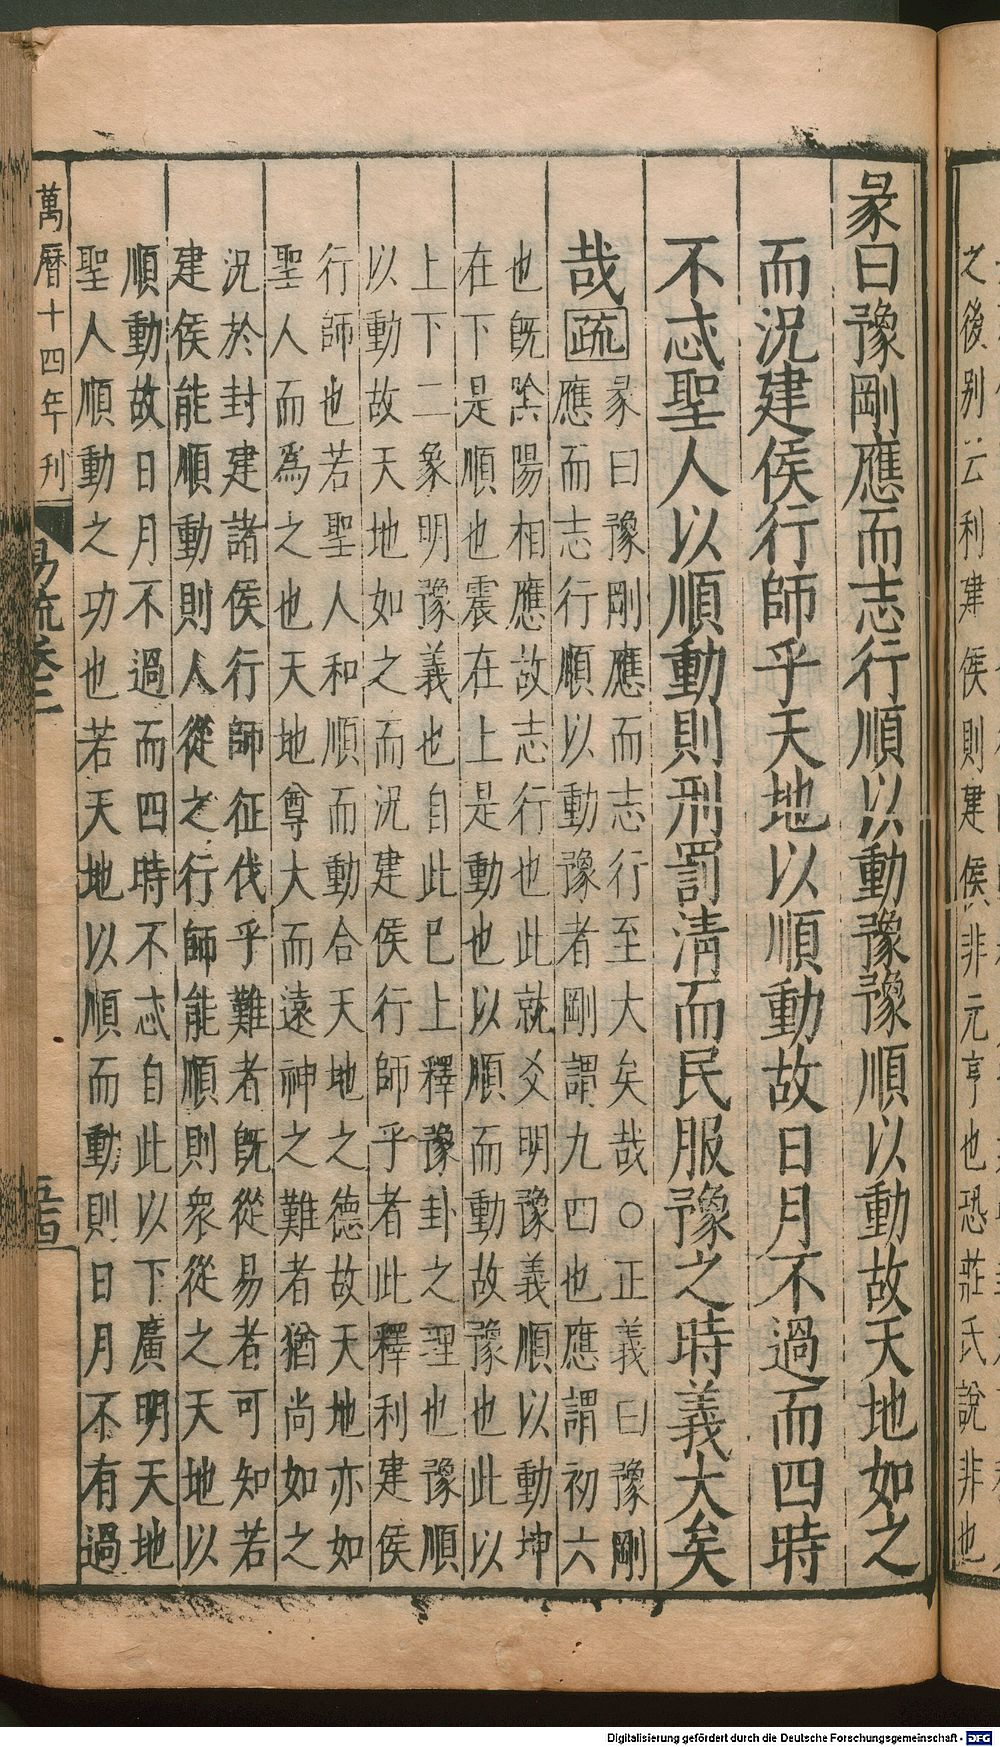 之後別云利建侯則建侯非元亨也恐莊氏說非也
彖曰豫剛應而志行順以動豫豫順以動故天地如之
而況建侯行師乎天地以順動故日月不過而四時
不忒聖人以順動則刑罰清而民服豫之時義大矣
哉疏
彖曰豫剛應而志行至大矣哉○正義曰豫剛
應而志行順以動豫者剛謂九四也應謂初六
也既陰陽相應故志行也此就爻明豫義順以動坤
在下是順也震在上是動也以順而動故豫也此以
上下二象明豫義也自此已上釋豫卦之理也豫順
以動故天地如之而況建侯行師乎者此釋利建侯
行師也若聖人和順而動合天地之德故天地亦如
聖人而爲之也天地尊大而遠神之難者猶尚如之
況於封建諸侯行師征伐乎難者既從易者可知若
建侯能順動則人從之行師能順則衆從之天地以
順動故日月不過而四時不忒自此以下廣明天地
聖人順動之功也若天地以順而動則日月不有過
萬曆十四年刊
易疏卷二
五十四
Digitalisierung gefördert durch die Deutsche Forschungsgemeinschaft - DFG